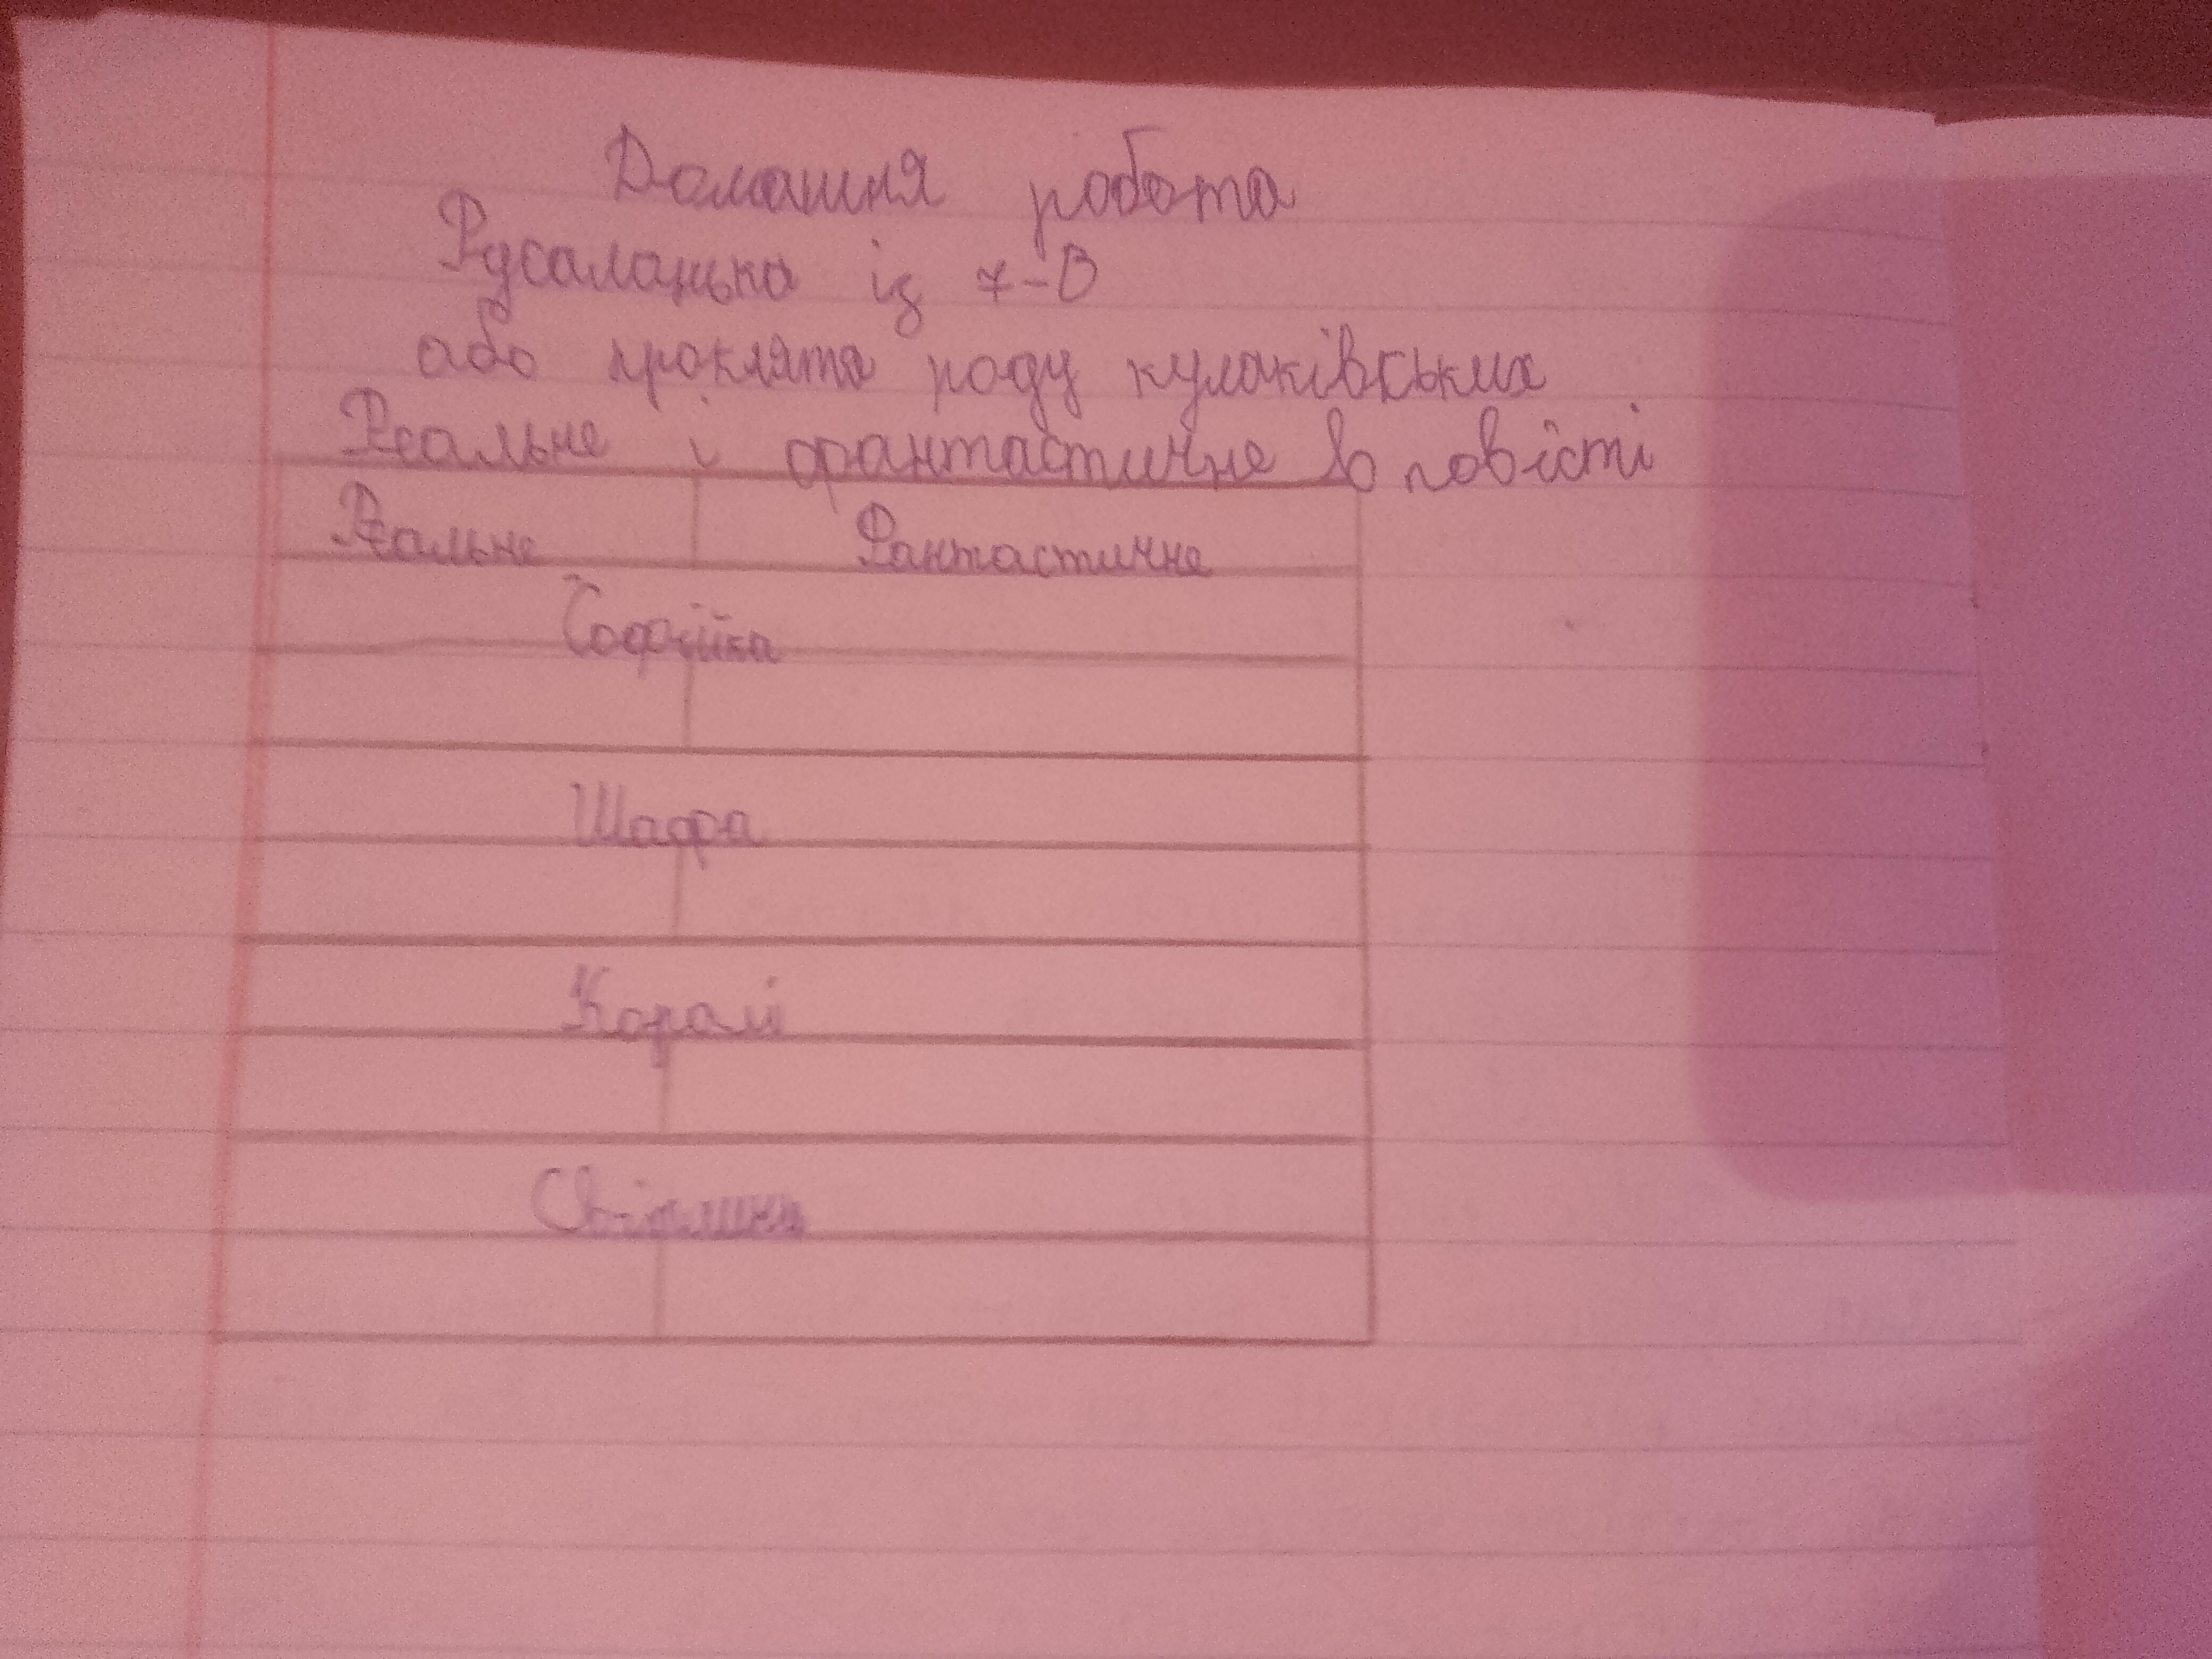 Домашня робота
Русалонька із 7-В
або прокляття роду кулаківських
Реальне і фантастичне в повісті
Реальне Фантастичне
Софійка
Шафа
Коралі
Світлина